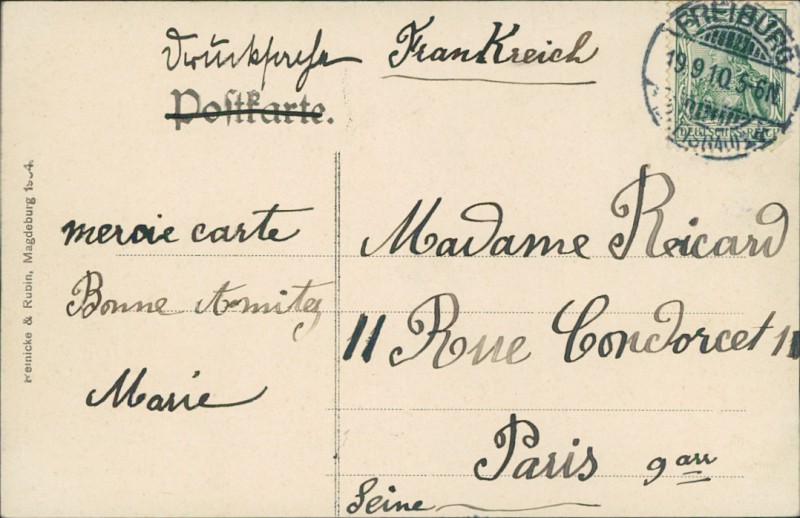 Drucksache Frankreich
Postkarte.
FREIBURG
19.9.10.5-6N
DEUTSCHES REICH
mercie carte
Bonne Amitez
Marie
Madame Reicard
11 Rue Condorcet 11
Paris 9 arr
Seine
Reinicke & Rubin, Magdeburg 1904.